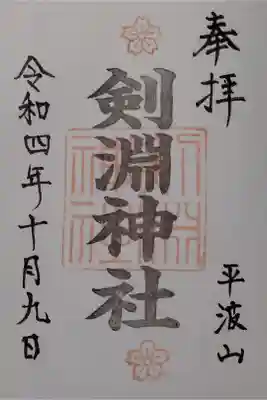 奉拝
平波山
剣淵神社
令和四年十月九日